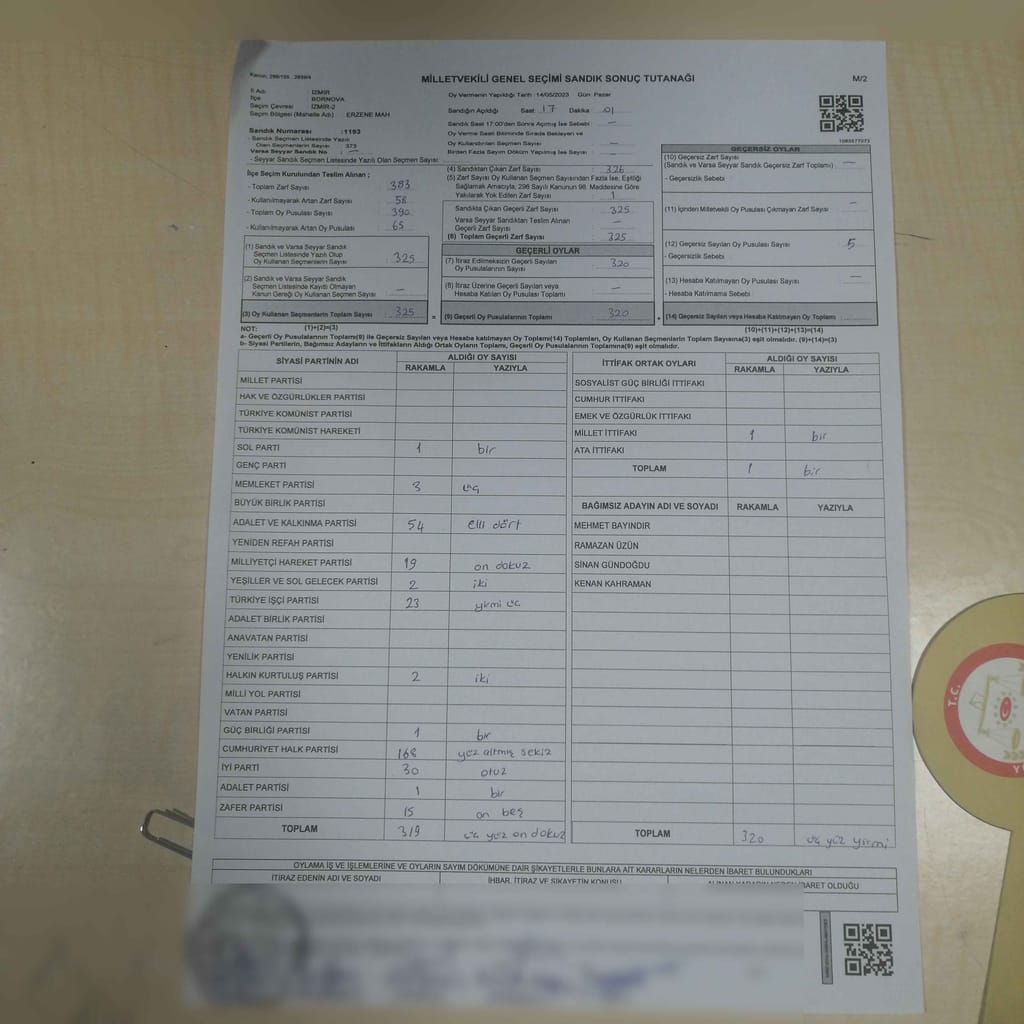 Kanun, 298/105 , 2839/4
MİLLETVEKİLİ GENEL SEÇİMİ SANDIK SONUÇ TUTANAĞI
M/2
İl Adı : İZMİR
İlçe : BORNOVA
Seçim Çevresi : İZMİR-2
Seçim Bölgesi (Mahalle Adı) : ERZENE MAH
Oy Vermenin Yapıldığı Tarih : 14/05/2023 Gün: Pazar
Sandığın Açıldığı Saat 17 Dakika 01
Sandık Saat 17:00'den Sonra Açılmış İse Sebebi : —
Oy Verme Saati Bitiminde Sırada Bekleyen ve
Oy Kullandırılan Seçmen Sayısı : —
Birden Fazla Sayım Döküm Yapılmış İse Sayısı : —
Sandık Numarası : 1193
- Sandık Seçmen Listesinde Yazılı
Olan Seçmenlerin Sayısı : 373
Varsa Seyyar Sandık No : —
- Seyyar Sandık Seçmen Listesinde Yazılı Olan Seçmen Sayısı :
İlçe Seçim Kurulundan Teslim Alınan ;
- Toplam Zarf Sayısı : 383
- Kullanılmayarak Artan Zarf Sayısı : 58
- Toplam Oy Pusulası Sayısı : 390
- Kullanılmayarak Artan Oy Pusulası : 65
(1) Sandık ve Varsa Seyyar Sandık
Seçmen Listesinde Yazılı Olup
Oy Kullanan Seçmenlerin Sayısı : 325
(2) Sandık ve Varsa Seyyar Sandık
Seçmen Listesinde Kayıtlı Olmayan
Kanun Gereği Oy Kullanan Seçmen Sayısı : —
(3) Oy Kullanan Seçmenlerin Toplam Sayısı : 325
(4) Sandıktan Çıkan Zarf Sayısı : 326
(5) Zarf Sayısı Oy Kullanan Seçmen Sayısından Fazla İse, Eşitliği
Sağlamak Amacıyla, 298 Sayılı Kanunun 98. Maddesine Göre
Yakılarak Yok Edilen Zarf Sayısı : 1
Sandıkta Çıkan Geçerli Zarf Sayısı : 325
Varsa Seyyar Sandıktan Teslim Alınan
Geçerli Zarf Sayısı : —
(6) Toplam Geçerli Zarf Sayısı : 325
GEÇERLİ OYLAR
(7) İtiraz Edilmeksizin Geçerli Sayılan
Oy Pusulalarının Sayısı : 320
(8) İtiraz Üzerine Geçerli Sayılan veya
Hesaba Katılan Oy Pusulası Toplamı : —
= (9) Geçerli Oy Pusulalarının Toplamı : 320
GEÇERSİZ OYLAR
(10) Geçersiz Zarf Sayısı : —
(Sandık ve Varsa Seyyar Sandık Geçersiz Zarf Toplamı)
- Geçersizlik Sebebi :
(11) İçinden Milletvekili Oy Pusulası Çıkmayan Zarf Sayısı : —
(12) Geçersiz Sayılan Oy Pusulası Sayısı : 5
- Geçersizlik Sebebi :
(13) Hesaba Katılmayan Oy Pusulası Sayısı : —
- Hesaba Katılmama Sebebi :
+ (14) Geçersiz Sayılan veya Hesaba Katılmayan Oy Toplamı :
NOT: (1)+(2)=(3) (10)+(11)+(12)+(13)=(14)
a- Geçerli Oy Pusulalarının Toplamı(9) ile Geçersiz Sayılan veya Hesaba katılmayan Oy Pusulası Toplamı(14) Toplamları, Oy Kullanan Seçmenlerin Toplam Sayısına(3) eşit olmalıdır. (9)+(14)=(3)
b- Siyasi Partilerin, Bağımsız Adayların ve İttifakların Aldığı Ortak Oyların Toplamı, Geçerli Oy Pusulalarının Toplamına(9) eşit olmalıdır.
SİYASİ PARTİNİN ADI ALDIĞI OY SAYISI
RAKAMLA YAZIYLA
MİLLET PARTİSİ
HAK VE ÖZGÜRLÜKLER PARTİSİ
TÜRKİYE KOMÜNİST PARTİSİ
TÜRKİYE KOMÜNİST HAREKETİ
SOL PARTİ 1 bir
GENÇ PARTİ
MEMLEKET PARTİSİ 3 üç
BÜYÜK BİRLİK PARTİSİ
ADALET VE KALKINMA PARTİSİ 54 elli dört
YENİDEN REFAH PARTİSİ
MİLLİYETÇİ HAREKET PARTİSİ 19 on dokuz
YEŞİLLER VE SOL GELECEK PARTİSİ 2 iki
TÜRKİYE İŞÇİ PARTİSİ 23 yirmi üç
ADALET BİRLİK PARTİSİ
ANAVATAN PARTİSİ
YENİLİK PARTİSİ
HALKIN KURTULUŞ PARTİSİ 2 iki
MİLLİ YOL PARTİSİ
VATAN PARTİSİ
GÜÇ BİRLİĞİ PARTİSİ 1 bir
CUMHURİYET HALK PARTİSİ 168 yüz altmış sekiz
İYİ PARTİ 30 otuz
ADALET PARTİSİ 1 bir
ZAFER PARTİSİ 15 on beş
TOPLAM 319 üç yüz on dokuz
İTTİFAK ORTAK OYLARI ALDIĞI OY SAYISI
RAKAMLA YAZIYLA
SOSYALİST GÜÇ BİRLİĞİ İTTİFAKI
CUMHUR İTTİFAKI
EMEK VE ÖZGÜRLÜK İTTİFAKI
MİLLET İTTİFAKI 1 bir
ATA İTTİFAKI
TOPLAM 1 bir
BAĞIMSIZ ADAYIN ADI VE SOYADI RAKAMLA YAZIYLA
MEHMET BAYINDIR
RAMAZAN ÜZÜN
SİNAN GÜNDOĞDU
KENAN KAHRAMAN
TOPLAM 320 üç yüz yirmi
OYLAMA İŞ VE İŞLEMLERİNE VE OYLARIN SAYIM DÖKÜMÜNE DAİR ŞİKAYETLERLE BUNLARA AİT KARARLARIN NELERDEN İBARET BULUNDUKLARI
İTİRAZ EDENİN ADI VE SOYADI
İHBAR, İTİRAZ VE ŞİKAYETİN KONUSU
T.C.